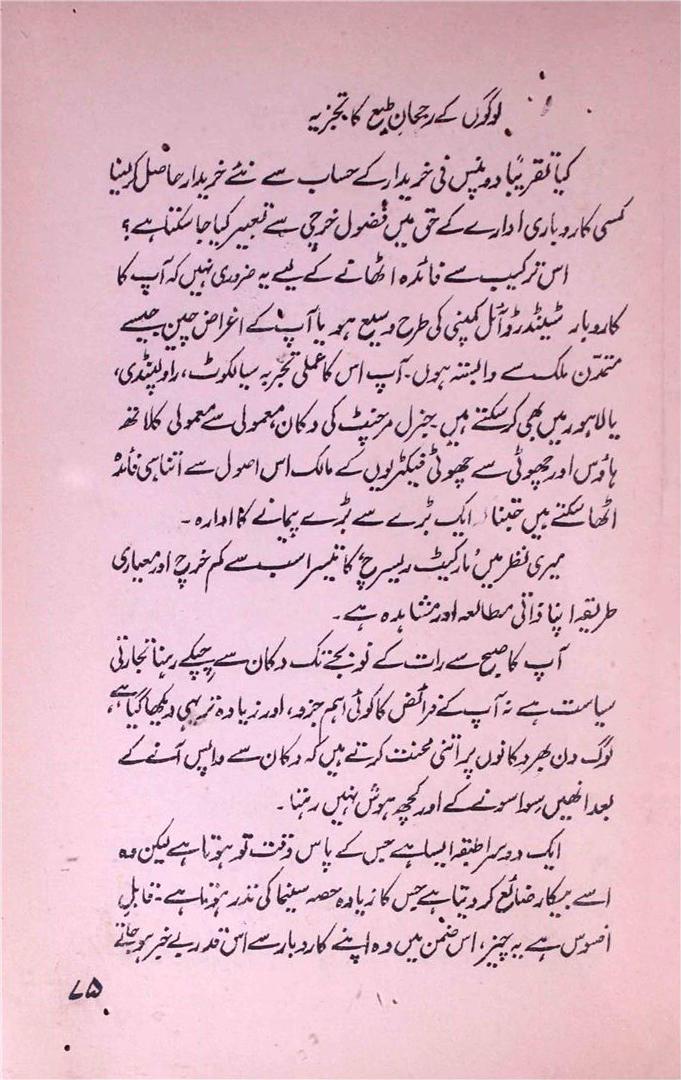 لوگوں کے رجحانِ طبع کا تجزیہ
کیا تقریباً دو پنس فی خریدار کے حساب سے نئے خریدار حاصل کر لینا
کسی کاروباری ادارے کے حق میں فضول خرچی سے تعبیر کیا جا سکتا ہے؟
اس ترکیب سے فائدہ اٹھانے کے لیے یہ ضروری نہیں کہ آپ کا
کاروبار سٹینڈرڈ آئل کمپنی کی طرح وسیع ہو یا آپ کے اغراض چین جیسے
متمدّن ملک سے وابستہ ہوں۔ آپ اس کا عملی تجربہ سیالکوٹ، راولپنڈی،
یا لاہور میں بھی کر سکتے ہیں جنرل مرچنٹ کی دکان معمولی سے معمولی کلاتھ
ہاؤس اور چھوٹی سے چھوٹی فیکٹریوں کے مالک اس اصول سے اُتنا ہی فائدہ
اٹھا سکتے ہیں جتنا ایک بڑے سے بڑے پیمانے کا ادارہ۔
میری نظر میں ’مارکیٹ ریسرچ‘ کا تیسرا سب سے کم خرچ اور معیاری
طریقہ اپنا ذاتی مطالعہ اور مشاہدہ ہے۔
آپ کا صبح سے رات کے نو بجے تک دکان سے چپکے رہنا تجارتی
سیاست ہے نہ آپ کے فرائض کا کوئی اہم جزو، اور زیادہ تر یہی دیکھا گیا ہے،
لوگ دن بھر دکانوں پر اتنی محنت کرتے ہیں کہ دکان سے واپس آنے کے
بعد انھیں سوا سونے کے اور کچھ ہوش نہیں رہتا۔
ایک دوسرا طبقہ ایسا ہے جس کے پاس وقت تو ہوتا ہے لیکن وہ
اسے بیکار ضائع کر دیتا ہے جس کا زیادہ حصہ سینما کی نذر ہوتا ہے۔ قابلِ
افسوس ہے یہ چیز، اس ضمن میں وہ اپنے کاروبار سے اس قدر بے خبر ہو جاتے
۷۵